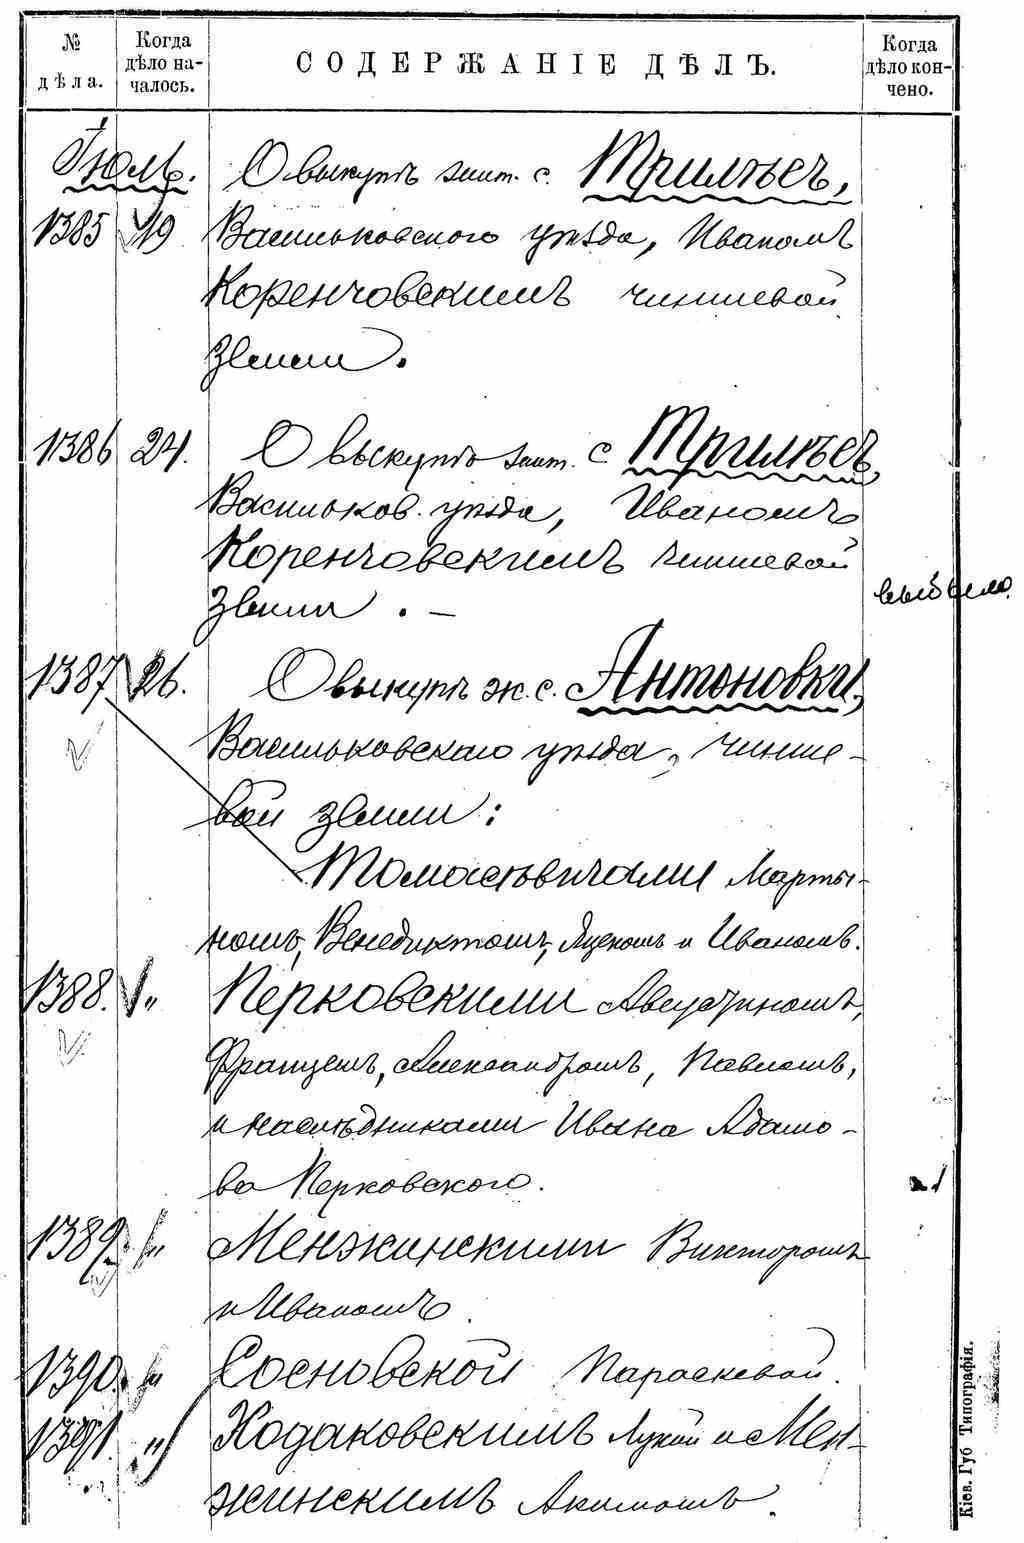 № дѣла. Когда дѣло началось. СОДЕРЖАНІЕ ДѢЛЪ. Когда дѣло кончено.
Іюль. О выкупѣ жит. с. Трилѣсъ,
1385 19 Васильковского уѣзда, Иваномъ
Коренчовскимъ чиншевой
земли.
1386 24. О выкупѣ жит. с Трилѣсъ,
Васильков. уѣзда, Иваномъ
Коренчовскимъ чиншевой
земли. —
выбыло.
1387 26. О выкупѣ ж. с. Антоновки,
Васильковскаго уѣзда, чинше-
вой земли:
Томасѣвичами Марты-
номъ, Венедиктомъ, Яцкомъ и Иваномъ.
1388. „ Перковскими Августиномъ,
Францемъ, Александромъ, Павломъ,
и наслѣдниками Ивана Адамо-
ва Перковского.
1389. „ Менжинскими Викторомъ
и Иваномъ.
1390. „ Сосновской Параскевой.
1391. „ Ходаковскимъ Лукой и Мен-
жинскимъ Акимомъ.
Кіев. Губ Типографія.